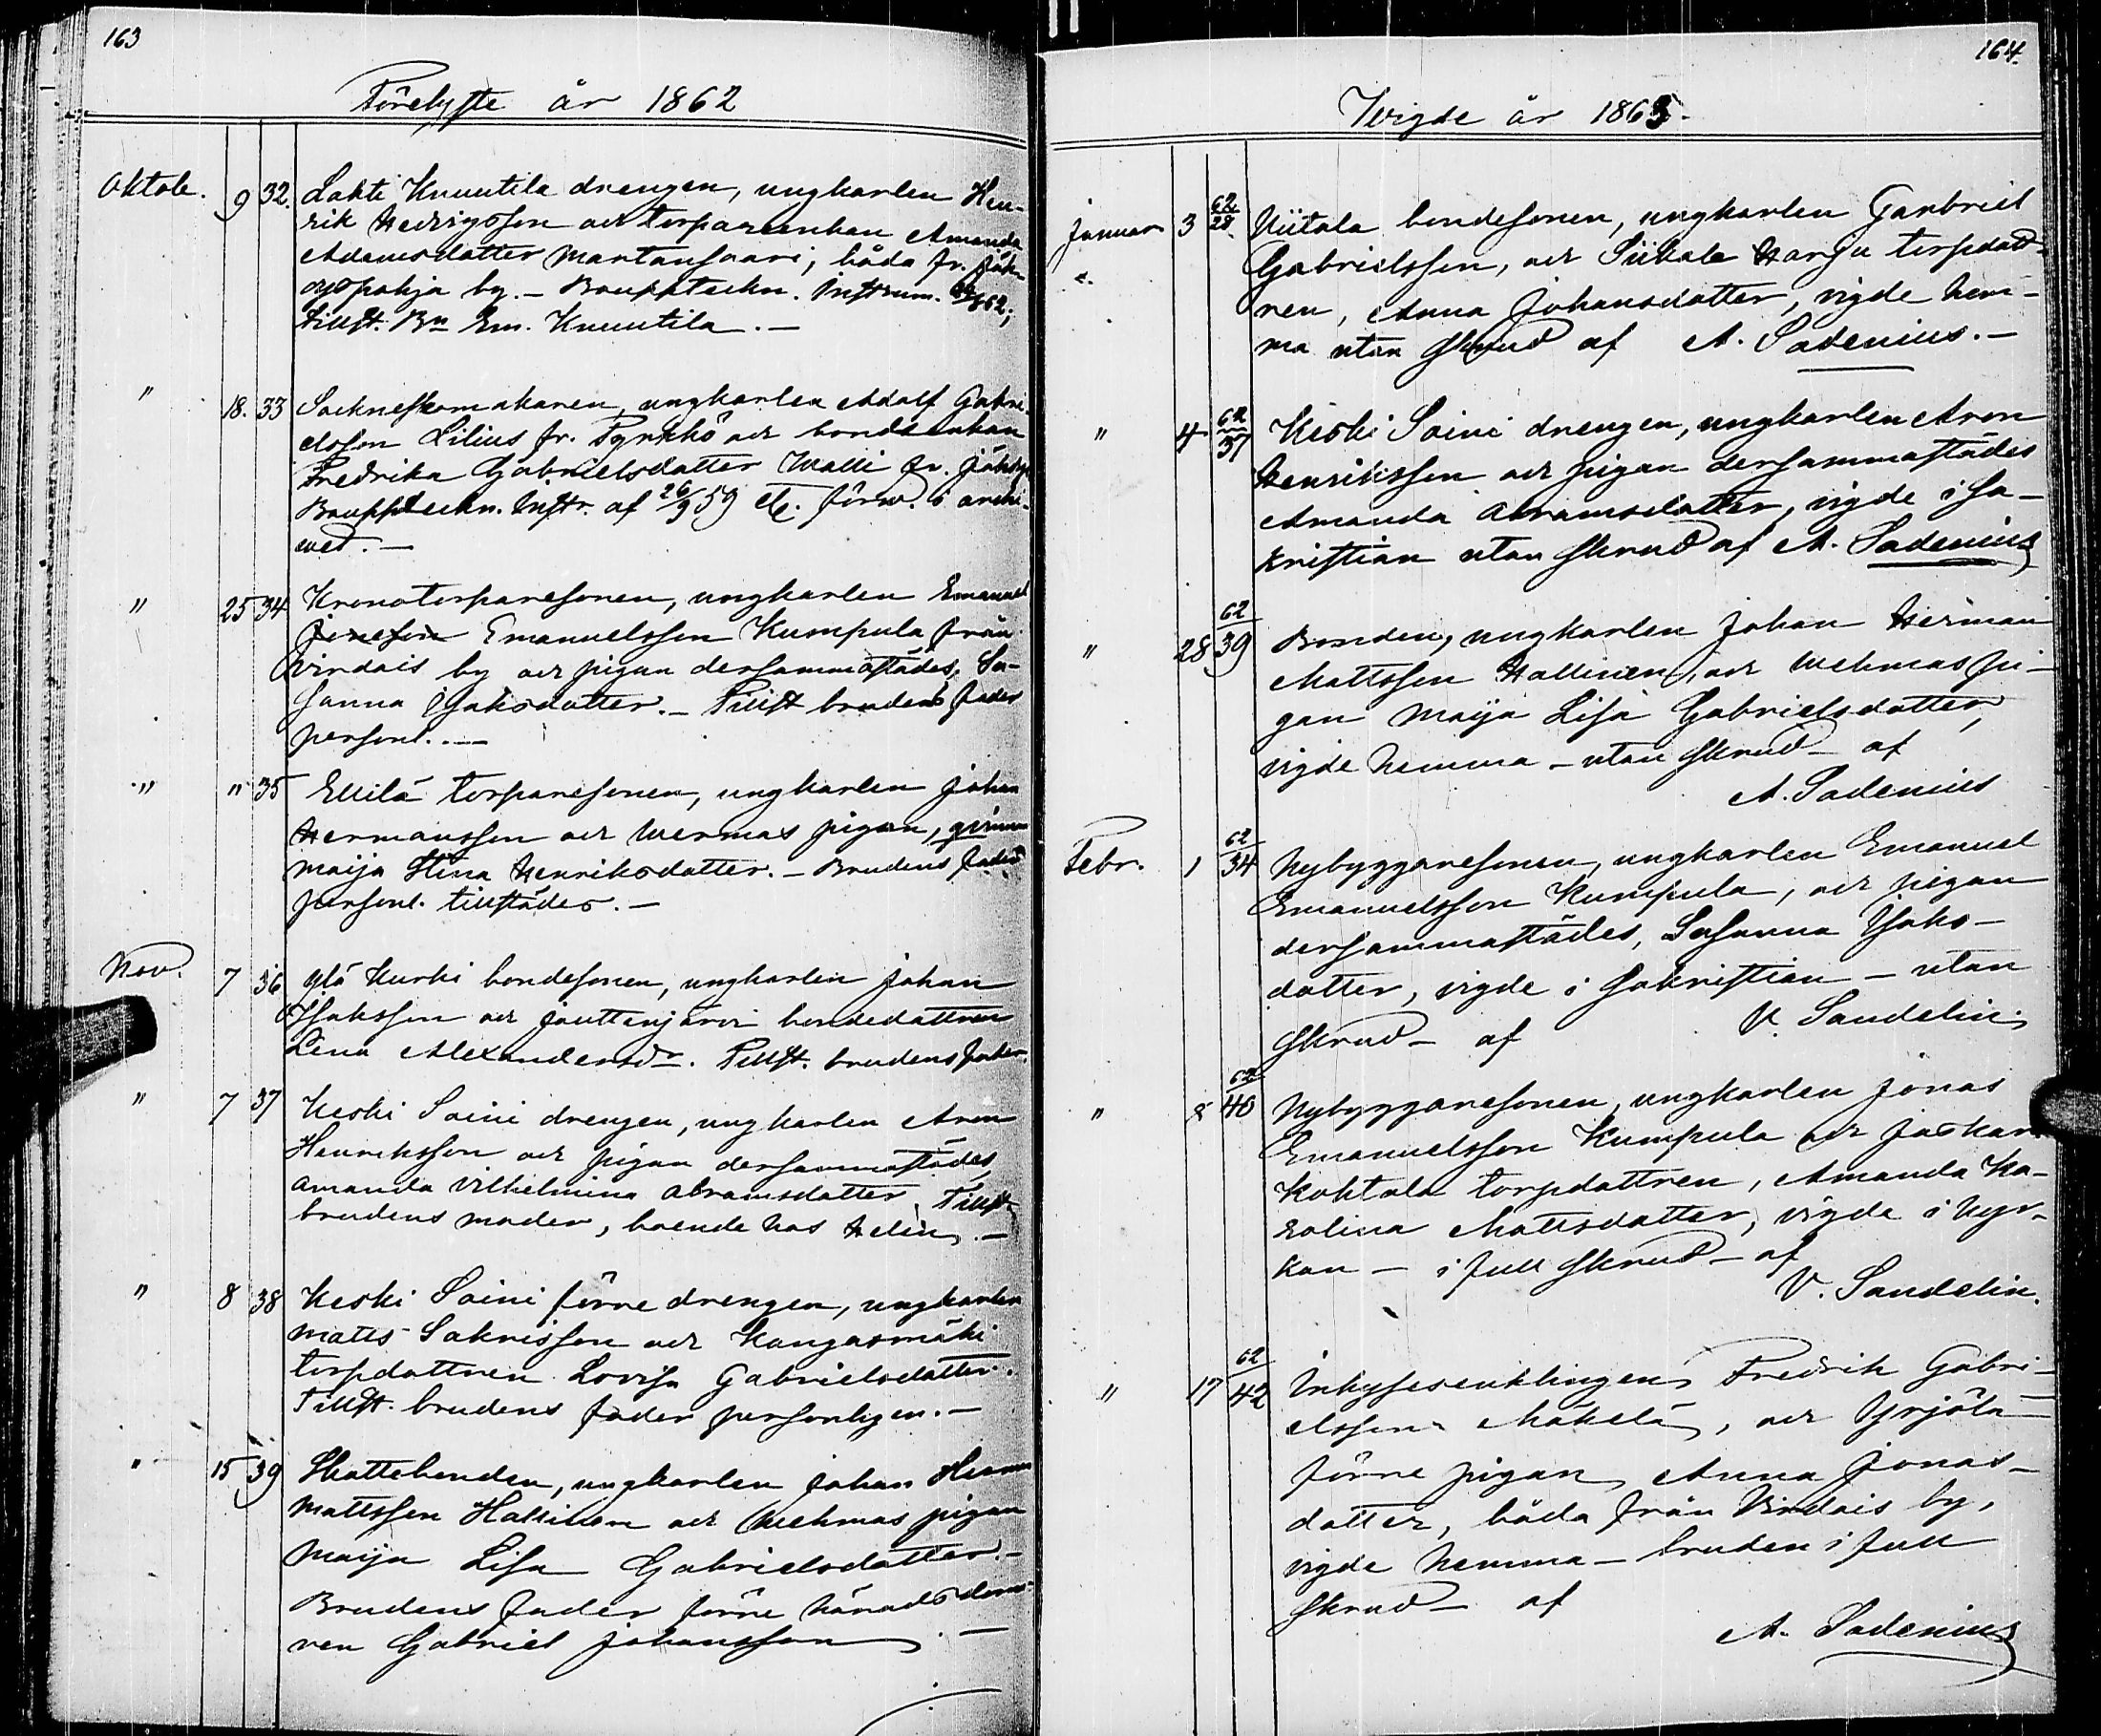 163
Förelyste år 1862
Oktob. 9 32. Lahti Knuutila drengen, ungkarlen Hen-
rik Hedrigsson och torpareenkan Amanda
Adamsdatter Martansaari, båda fr.
by. – Bouppteckn. Instrum.
tillst. Bn Em. Knuutila. –
" 18. 33 Sockneskomakaren, ungkarlen Adolf Gabri-
elsson Lilius fr. Pyrkkö och bondeenkan
Fredrika Gabrielsdatter Walli fr.
Bouppteckn. Instr. af 26/9 59 etc. förw. i arki-
vet. –
" 25 34 Kronotorparesonen, ungkarlen Emanuel
Emanuelsson Kumpula från
Virdois by och pigan dersammastädes, Su-
sanna Isaksdatter. – Tillst brudens fader
personl. –
" " 35 Ellilä torparesonen, ungkarlen Johan
Hermansson och Wermas pigan,
Maija Stina Henriksdatter. – Brudens fader
personl. tillstädes. –
Nov. 7 36 Ylä Kurki bondesonen, ungkarlen Johan
Isaksson och Jauttenjärvi bondedattren
Lena Alexandersdr. Tillst. brudens fader.
" 7 37 Keski Soini drengen, ungkarlen Aron
Henriksson och pigan dersammastädes
Amanda Vilhelmina Abramsdatter, Tillst
brudens moder, boende hos Helin. –
" 8 38 Keski Soini förre drengen, ungkarlen
Matts Sakrisson och Kangasmäki
torpdattren Lovisa Gabrielsdatter.
Tillst. brudens fader personligen. –
" 15 39 Skattebonden, ungkarlen Johan Herman
Mattsson Hallinen och Wehmas pigan
Maija Lisa Gabrielsdatter. –
Brudens fader förre häradsdoma-
ren Gabriel Johansson. –
164.
Wigde år 1863.
Januar 3 62/28. Uiitala bondesonen, ungkarlen Gabriel
Gabrielsson, och Siikala Harju torpdatt-
ren, Anna Johansdatter, vigde hem-
ma utan skrud af A. Sadenius. –
" 4 62/37 Keski Soini drengen, ungkarlen Aron
Henriksson och pigan dersammastädes
Amanda Abramsdatter, vigde i sa-
kristian utan skrud af A. Sadenius
" 28 62/39 Bonden, ungkarlen Johan Herman
Mattsson Hallinen, och Wehmas pi-
gan Maija Lisa Gabrielsdatter,
vigde hemma – utan skrud – af
A. Sadenius
Febr. 1 62/34 Nybyggaresonen, ungkarlen Emanuel
Emanuelsson Kumpula, och pigan
dersammastädes, Susanna Isaks-
datter, vigde i sakristian – utan
skrud – af V. Sandelin.
" 8 62/40 Nybyggaresonen, ungkarlen Jonas
Emanuelsson Kumpula och Jäskari
Kohtala torpdattren, Amanda Ka-
rolina Mattsdatter, vigde i kyr-
kan – i full skrud – af
V. Sandelin.
" 17 62/42 Inhysesenklingen Fredrik Gabri-
elsson Mäkelä, och Yrjölä
förre pigan, Anna Jonas-
datter, båda från Virdois by,
vigde hemma – bruden i full
skrud – af
A. Sadenius